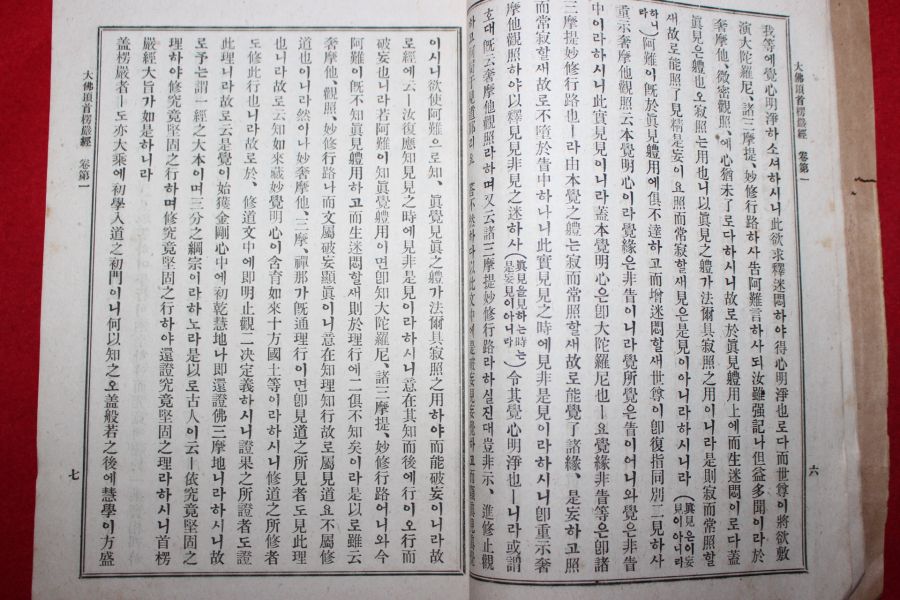 大佛頂首楞嚴經 卷第一
六
我等에覺心明淨하소셔하시니此欲求釋迷悶하야得心明淨也로다而世尊이將欲敷
演大陀羅尼、諸三摩提、妙修行路하사告阿難言하사되汝雖强記나但益多聞이라於
奢摩他、微密觀照、에心猶未了로다하시니故로於眞見體用上에而生迷悶이로다蓋
眞見은體也오寂照는用也니以眞見之體가法爾具寂照之用이니是則寂而常照할
새故로能照了見精是妄이요照而常寂할새見은是見이아니라하시니라 (眞見은이妄見이아니라
하니라) 阿難이旣於眞見體用에俱不達하고而增迷悶할새世尊이卽復指同別二見하사
重示奢摩他觀照云本覺明心이라覺緣은非眚이니라覺所覺은眚이어니와覺은非眚
中이라하시니此實見見이니라蓋本覺明心은卽大陀羅尼也ㅣ요覺緣非眚等은卽諸
三摩提妙修行路也ㅣ라由本覺之體는寂而常照할새故로能覺了諸緣、是妄하고照
而常寂할새故로不墮於眚中하나니此實見見之時에見非是見이라하시니卽重示奢
摩他觀照하야以釋見見非見之迷하사 (眞見을見하는時는是妄見이아니라) 令其覺心明淨也ㅣ니라或謂
호대旣云奢摩他觀照라하며又云諸三摩提妙修行路라하실진대豈非示、進修止觀
이시니欲使阿難으로知、眞覺見眞之體가法爾具寂照之用하야而能破妄이니라故
로經에云ㅣ汝復應知見見之時에見非是見이라하시니意在其知而後에行이오行而
破妄也니라若阿難이知眞覺體用이면卽知大陀羅尼、諸三摩提、妙修行路어니와今
阿難이旣不知眞見體用하고而生迷悶할새則於理行에二俱不知矣이라是以로雖云
奢摩他、觀照、妙修行路나而文屬破妄顯眞이니意在知理知行故로屬見道요不屬修
道也이니라然이나妙奢摩他、三摩、禪那가旣通理行이면卽見道之所見者도見此理
也니라故로云知如來藏妙覺明心이含育如來十方國土等이라하시니修道之所修者
도修此行也니라故로於、修道文中에卽明止觀二決定義하시니證果之所證者도證
此理니라故로云是覺이始獲金剛心中에初乾慧地나卽還證佛三摩地니라하시니故
로予는謂一經之大本이며三分之綱宗이라하노라是以로古人이云ㅣ依究竟堅固之
理하야修究竟堅固之行하며修究竟堅固之行하야還證究竟堅固之理라하시니首楞
嚴經大旨가如是하니라
盖楞嚴者ㅣ도亦大乘에初學入道之初門이니何以知之오盖般若之後에慧學이方盛
大佛頂首楞嚴經 卷第一
七